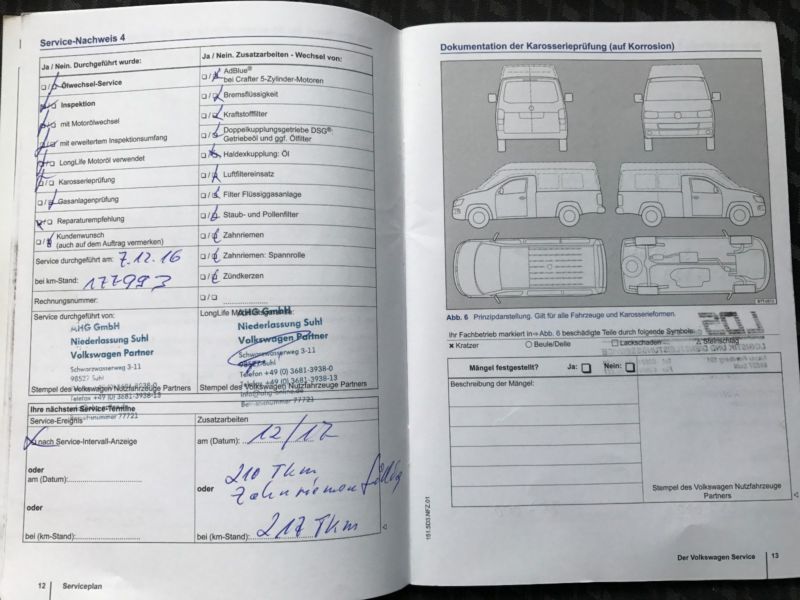 Service-Nachweis 4
Ja / Nein. Durchgeführt wurde:
☐ / ☐ Ölwechsel-Service
☐ / ☐ Inspektion
☐ / ☐ mit Motorölwechsel
☐ / ☐ mit erweitertem Inspektionsumfang
☐ / ☐ LongLife Motoröl verwendet
☐ / ☐ Karosserieprüfung
☐ / ☐ Gasanlagenprüfung
☐ / ☐ Reparaturempfehlung
☐ / ☐ Kundenwunsch
(auch auf dem Auftrag vermerken)
Service durchgeführt am: 7.12.16
bei km-Stand: 177993
Rechnungsnummer:
Service durchgeführt von:
AHG GmbH
Niederlassung Suhl
Volkswagen Partner
Schwarzwasserweg 3-11
98527 Suhl
Stempel des Volkswagen Nutzfahrzeuge Partners
Telefax +49 (0) 3681-3938-13
Ja / Nein. Zusatzarbeiten - Wechsel von:
☐ / ☐ AdBlue®
bei Crafter 5-Zylinder-Motoren
☐ / ☐ Bremsflüssigkeit
☐ / ☐ Kraftstofffilter
☐ / ☐ Doppelkupplungsgetriebe DSG®:
Getriebeöl und ggf. Ölfilter
☐ / ☐ Haldexkupplung: Öl
☐ / ☐ Luftfiltereinsatz
☐ / ☐ Filter Flüssiggasanlage
☐ / ☐ Staub- und Pollenfilter
☐ / ☐ Zahnriemen
☐ / ☐ Zahnriemen: Spannrolle
☐ / ☐ Zündkerzen
☐ / ☐
LongLife
AHG GmbH
Niederlassung Suhl
Volkswagen Partner
Schwarzwasserweg 3-11
98527 Suhl
Telefon +49 (0) 3681-3938-0
Telefax +49 (0) 3681-3938-13
Stempel des Volkswagen Nutzfahrzeuge Partners
Betriebsnummer 77721
Ihre nächsten Service-Termine
Service-Ereignis
nach Service-Intervall-Anzeige
oder
am (Datum):
oder
bei (km-Stand):
Zusatzarbeiten
am (Datum): 12/17
210 TKm
oder Zahnriemen fällig
bei (km-Stand): 217 TKm
12 Serviceplan
Dokumentation der Karosserieprüfung (auf Korrosion)
Abb. 6 Prinzipdarstellung. Gilt für alle Fahrzeuge und Karosserieformen.
Ihr Fachbetrieb markiert in ⇒ Abb. 6 beschädigte Teile durch folgende Symbole:
× Kratzer ○ Beule/Delle ☐ Lackschaden △ Steinschlag
Mängel festgestellt? Ja: ☐ Nein: ☐
Beschreibung der Mängel:
Stempel des Volkswagen Nutzfahrzeuge
Partners
151.5D3.NFZ.01
Der Volkswagen Service 13